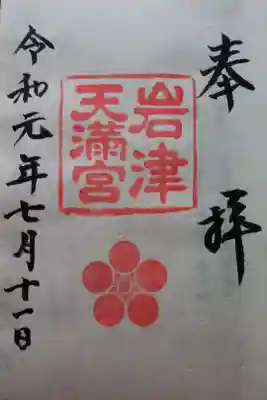 奉拝
岩津
天満宮
令和元年七月十一日